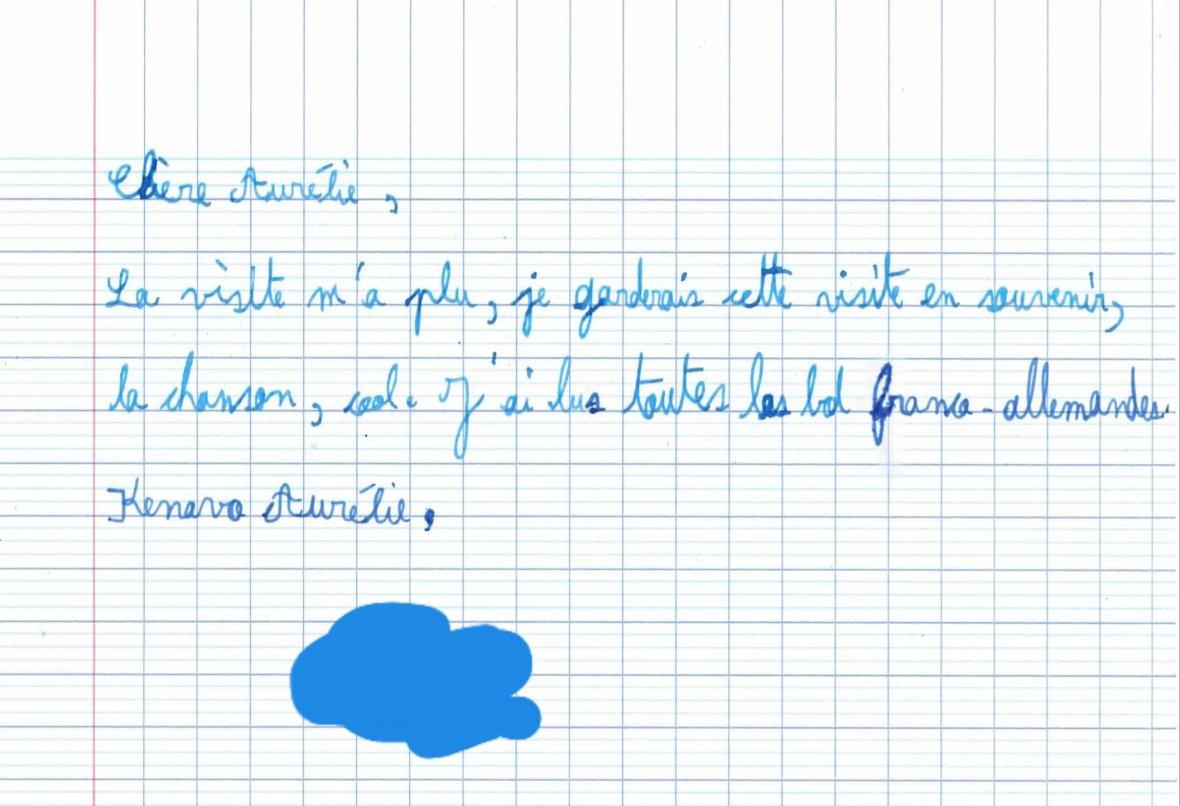 Chère Aurélie,
La visite m'a plu, je garderais cette visite en souvenir,
la chanson, cool. J'ai lus toutes les bd franco-allemandes.
Kenavo Aurélie.